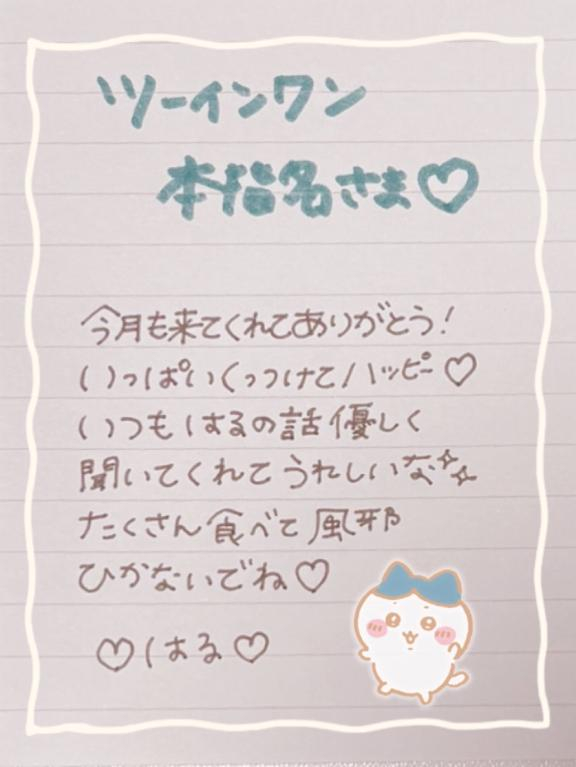 ツーインワン
本指名さま♡
今月も来てくれてありがとう!
いっぱいくっつけてハッピー♡
いつもはるの話優しく
聞いてくれてうれしいな✨
たくさん食べて風邪
ひかないでね♡
♡はる♡